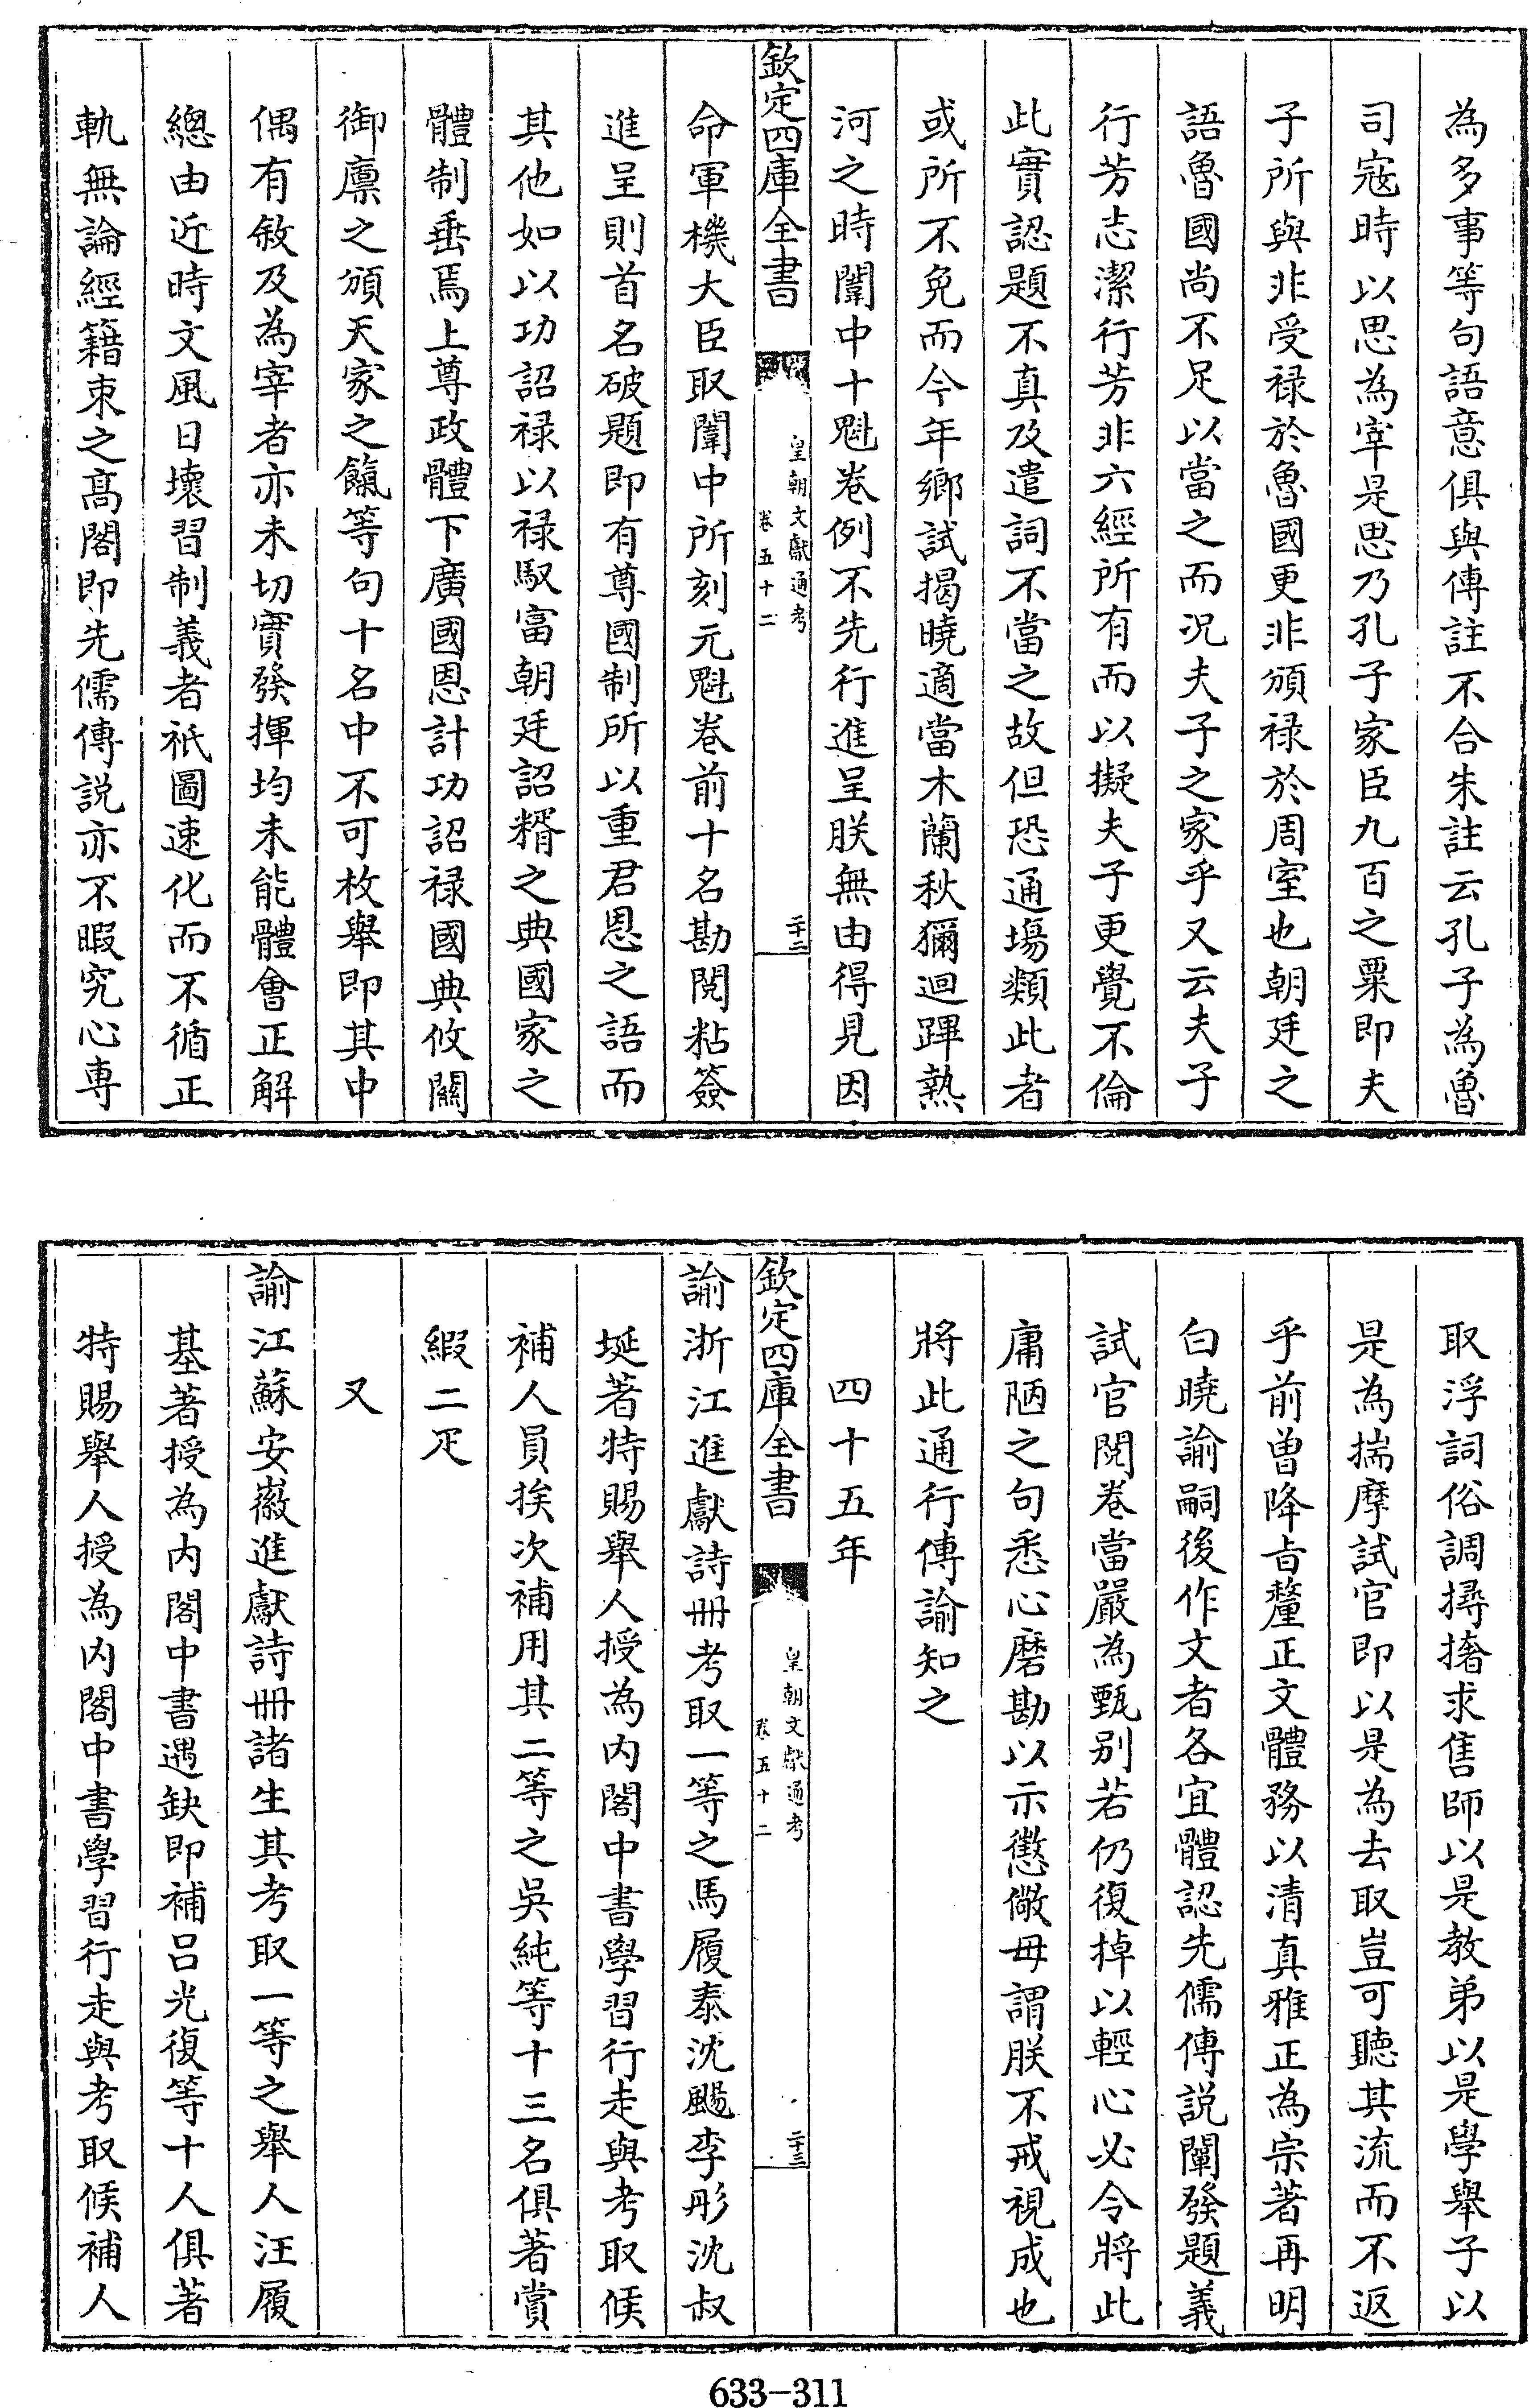 為多事等句語意俱與傳註不合朱註云孔子為魯
司寇時以思為宰是思乃孔子家臣九百之粟即夫
子所與非受禄於魯國更非頒禄於周室也朝廷之
語魯國尚不足以當之而况夫子之家乎又云夫子
行芳志潔行芳非六經所有而以擬夫子更覺不倫
此實認題不真及遣詞不當之故但恐通塲類此者
或所不免而今年鄉試揭曉適當木蘭秋獮迴蹕熱
河之時闈中十魁卷例不先行進呈朕無由得見因
欽定四庫全書
皇朝文獻通考
卷五十二
二十二
命軍機大臣取闈中所刻元魁卷前十名勘閱粘簽
進呈則首名破題即有尊國制所以重君恩之語而
其他如以功詔禄以禄馭富朝廷詔糈之典國家之
體制垂焉上尊政體下廣國恩計功詔禄國典攸關
御廪之頒天家之餼等句十名中不可枚舉即其中
偶有敘及為宰者亦未切實發揮均未能體會正解
總由近時文風日壞習制義者祇圖速化而不循正
軌無論經籍束之髙閣即先儒傳説亦不暇究心専
取浮詞俗調撏撦求售師以是教弟以是學舉子以
是為揣摩試官即以是為去取豈可聽其流而不返
乎前曾降旨釐正文體務以清真雅正為宗著再明
白曉諭嗣後作文者各宜體認先儒傳説闡發題義
試官閱卷當嚴為甄别若仍復掉以輕心必令將此
庸陋之句悉心磨勘以示懲儆毋謂朕不戒視成也
將此通行傳諭知之
四十五年
欽定四庫全書
皇朝文獻通考
卷五十二
二十三
諭浙江進獻詩冊考取一等之馬履泰沈颺李彤沈叔
埏著特賜舉人授為内閣中書學習行走與考取候
補人員挨次補用其二等之吳純等十三名俱著賞
緞二疋
又
諭江蘇安徽進獻詩冊諸生其考取一等之舉人汪履
基著授為内閣中書遇缺即補呂光復等十人俱著
特賜舉人授為内閣中書學習行走與考取候補人
633-311